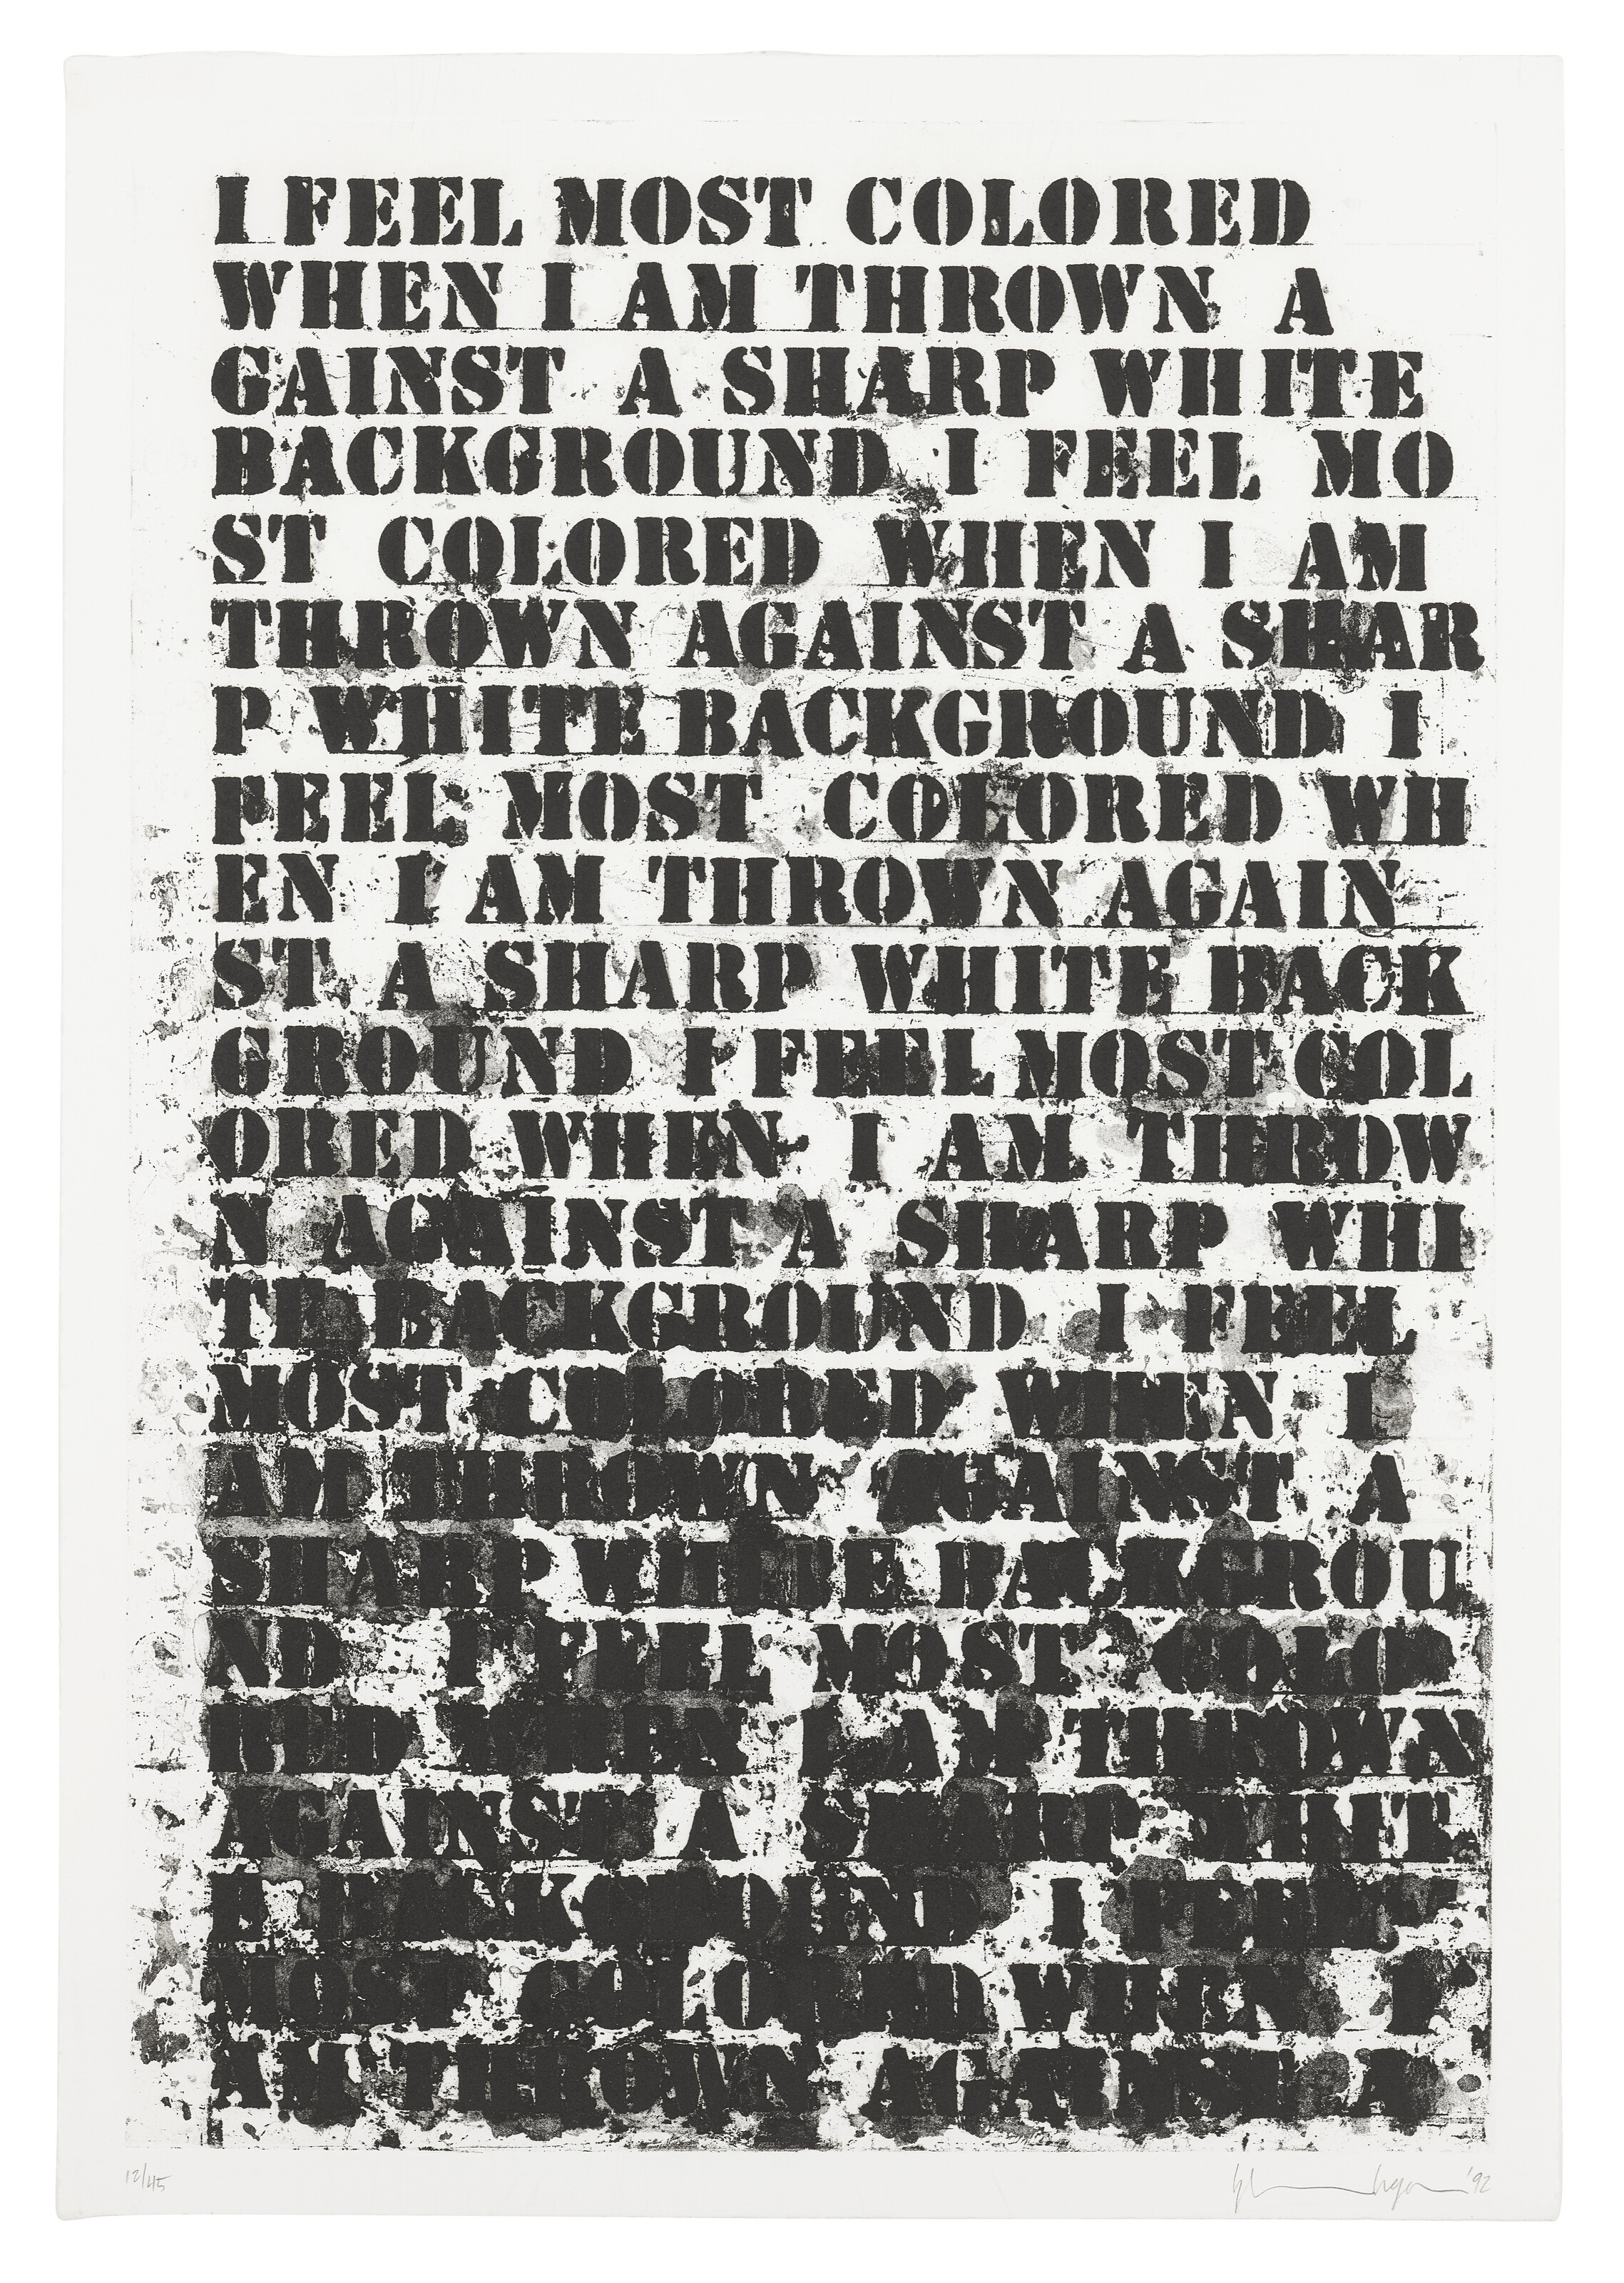 I FEEL MOST COLORED
WHEN I AM THROWN A
GAINST A SHARP WHITE
BACKGROUND I FEEL MO
ST COLORED WHEN I AM
THROWN AGAINST A SHAR
P WHITE BACKGROUND I
FEEL MOST COLORED WH
EN I AM THROWN AGAIN
ST A SHARP WHITE BACK
GROUND I FEEL MOST COL
ORED WHEN I AM THROW
N AGAINST A SHARP WHI
TE BACKGROUND I FEEL
MOST COLORED WHEN I
AM THROWN AGAINST A
SHARP WHITE BACKGROU
ND I FEEL MOST COLO
RED WHEN I AM THROWN
AGAINST A SHARP WHIT
E BACKGROUND I FEEL
MOST COLORED WHEN I
AM THROWN AGAINST A
12/45
'92